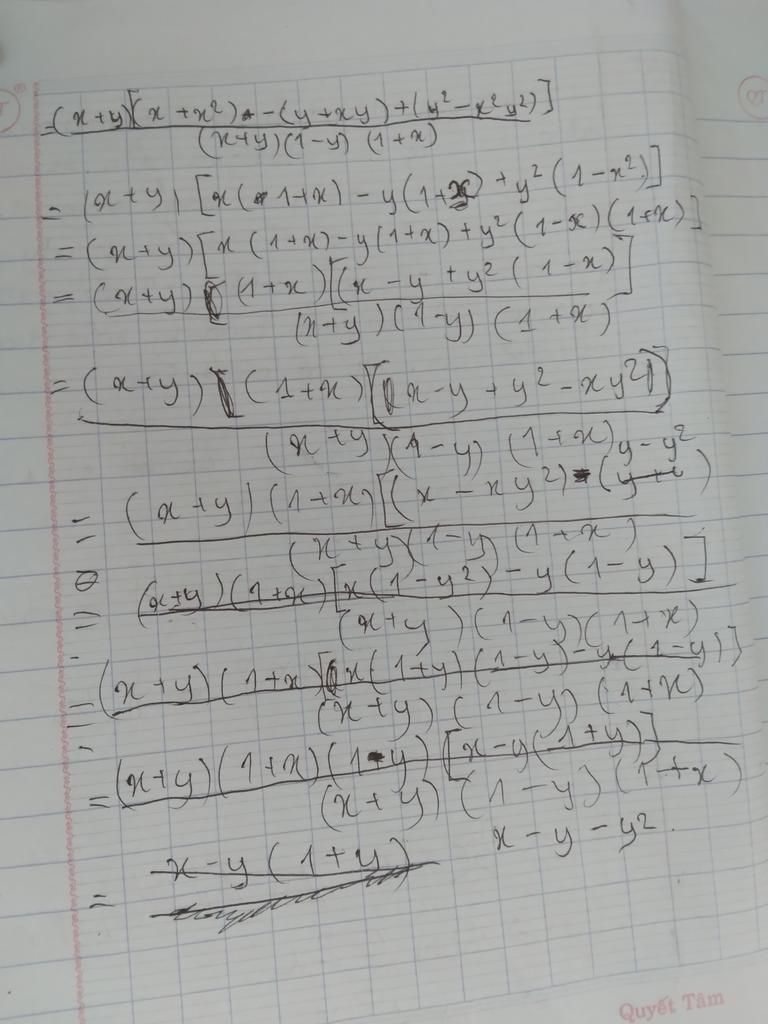 = (x+y)[(x+x²) - (y+xy) + (y²-x²y²)]
(x+y)(1-y)(1+x)
= (x+y)[x(1+x) - y(1+x) + y²(1-x²)]
= (x+y)[x(1+x) - y(1+x) + y²(1-x)(1+x)]
= (x+y)(1+x)[(x-y+y²(1-x)]
(x+y)(1-y)(1+x)
= (x+y)(1+x)[x-y+y²-xy²]
(x+y)(1-y)(1+x)
y-y²
= (x+y)(1+x)[(x-xy²)-(y )
(x+y)(1-y)(1+x)
= (x+y)(1+x)[x(1-y²)-y(1-y)]
(x+y)(1-y)(1+x)
= (x+y)(1+x)[x(1+y)(1-y)-y(1-y)]
(x+y)(1-y)(1+x)
= (x+y)(1+x)(1-y)[x-y(1+y)]
(x+y)(1-y)(1+x)
= x-y(1+y)
x-y-y².
Quyết Tâm